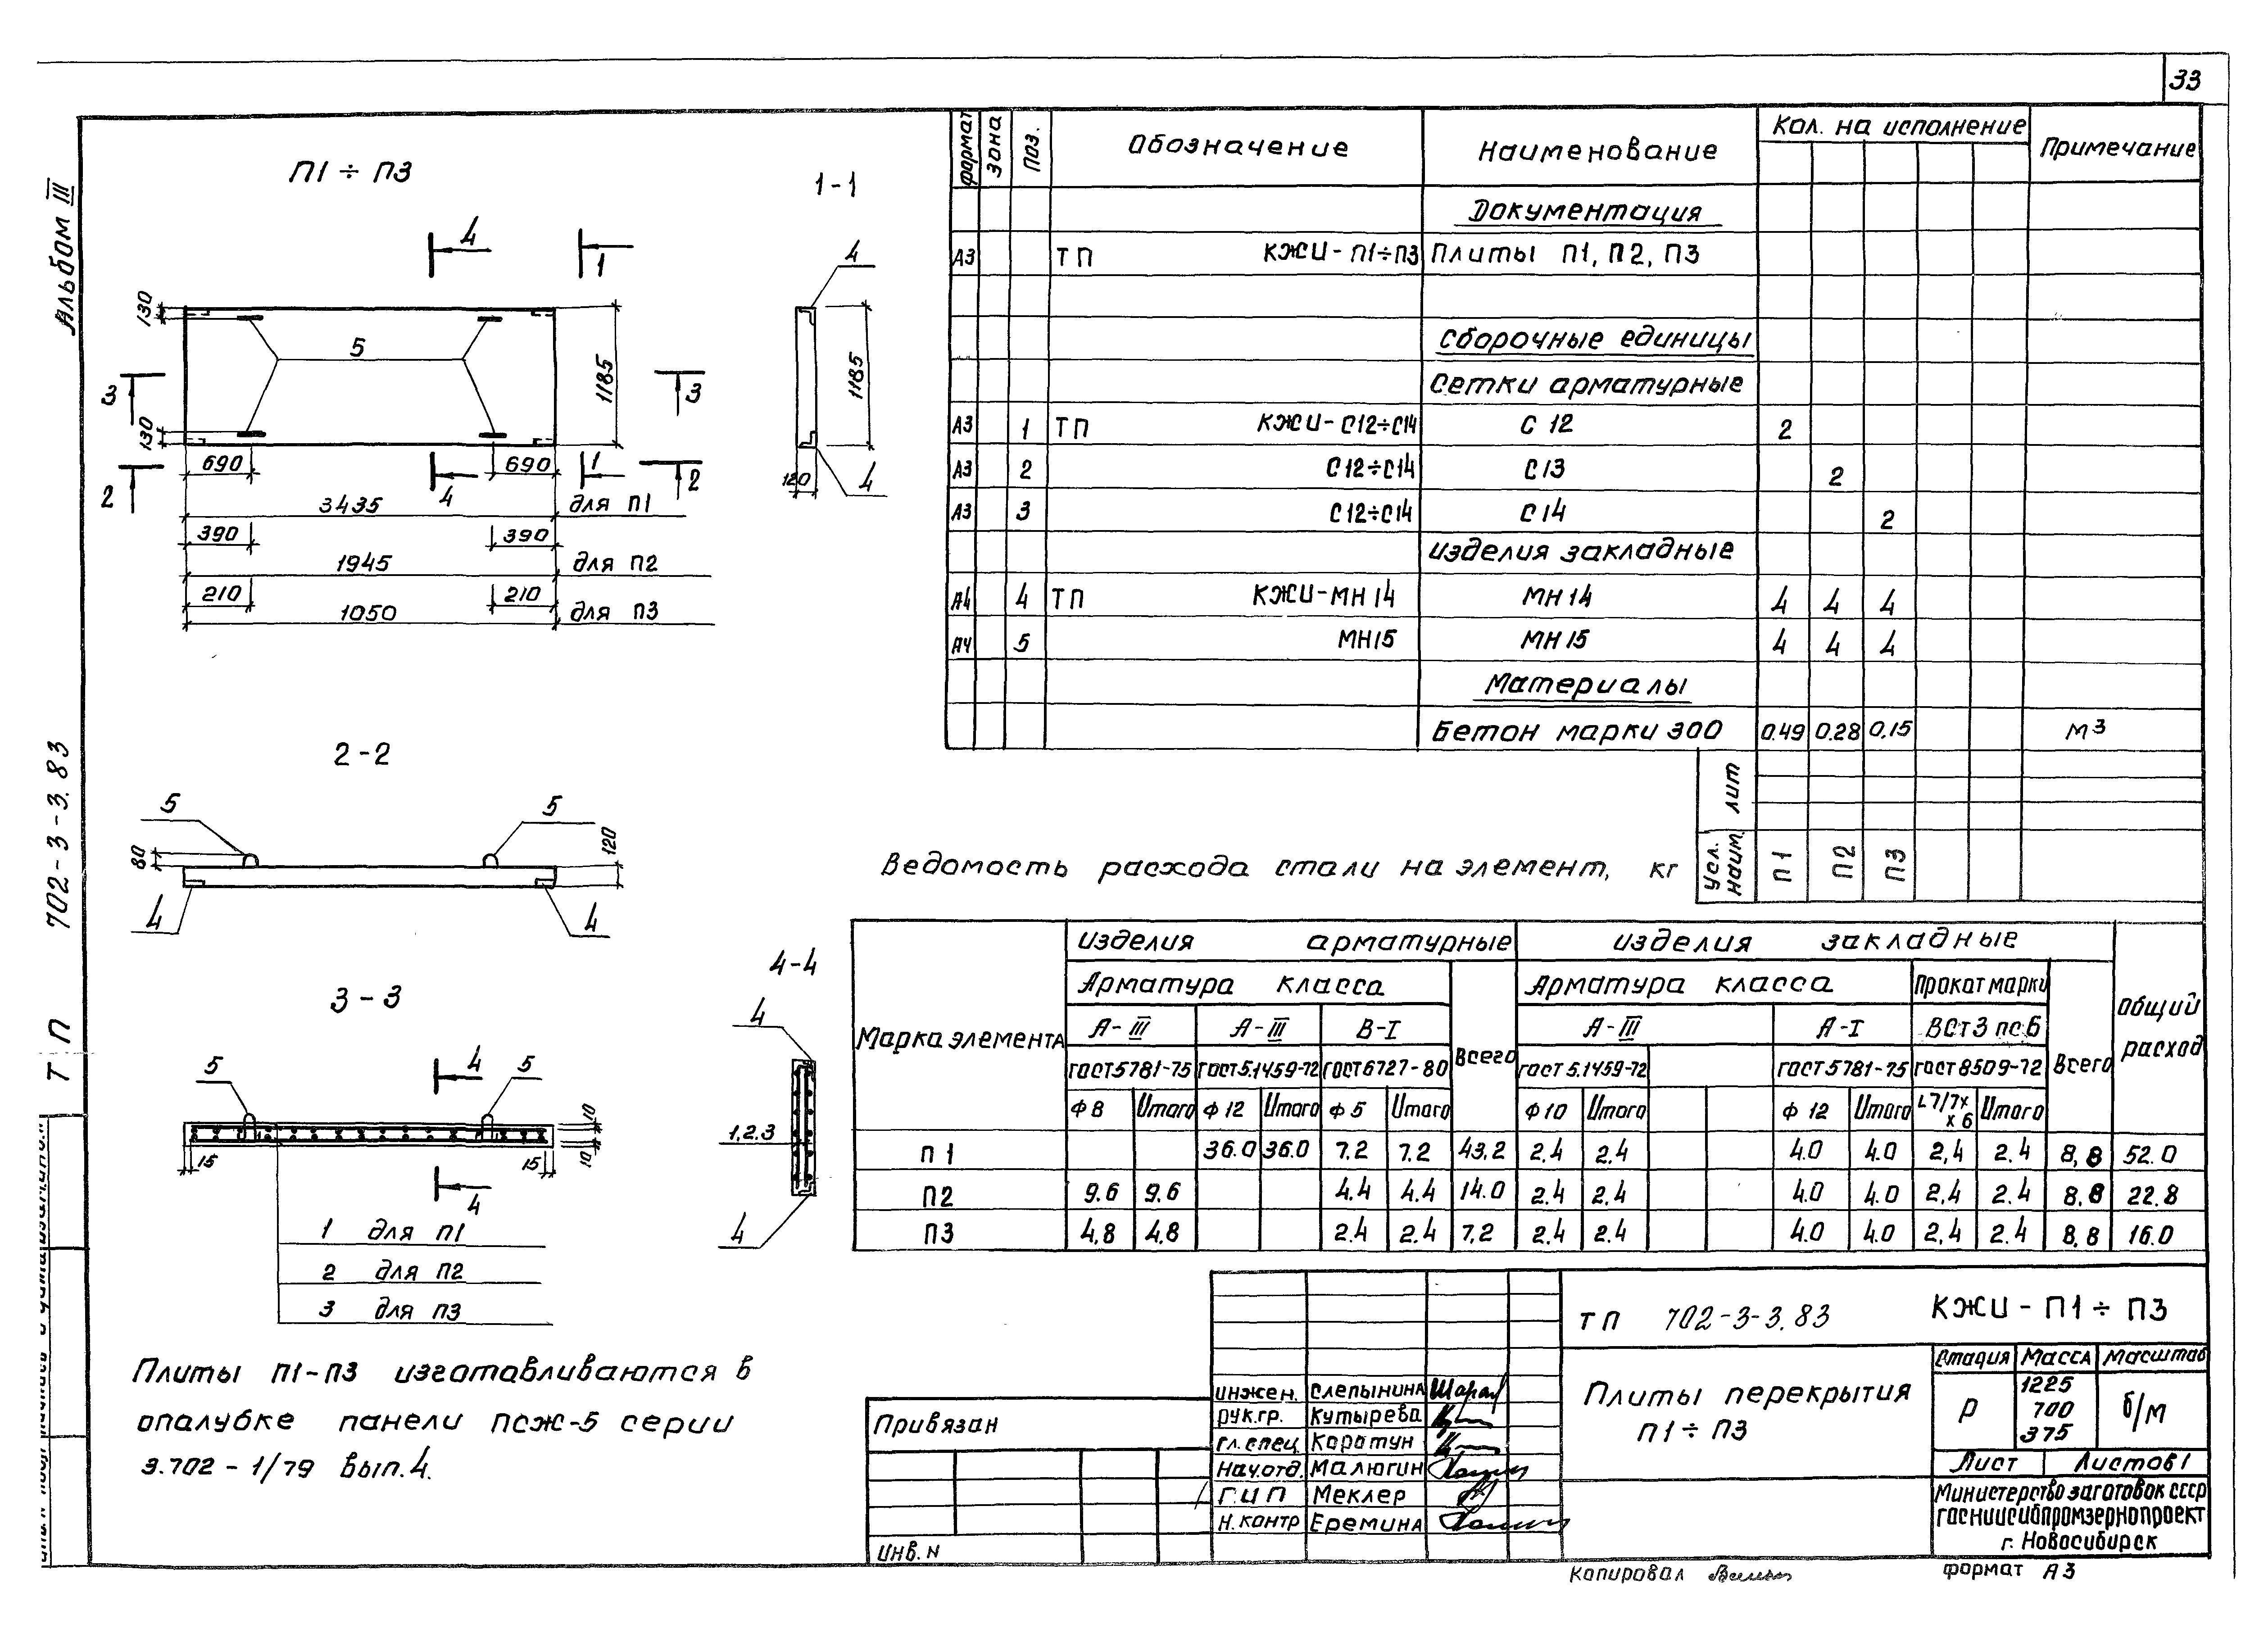 33
Альбом III
ТП 702-3-3.83
П1 ÷ П3
1-1
4
1
130
5
1185
3
3
130
690
690
1
2
4
2
3435 для П1
390
390
1945 для П2
210
210
1050 для П3
4
1185
120
4
2-2
5
5
80
120
4
4
3-3
4
5
5
10
10
15
15
4
1 для П1
2 для П2
3 для П3
4-4
4
1,2.3
4
Плиты П1-П3 изготавливаются в
опалубке панели ПСЖ-5 серии
3.702-1/79 вып.4.
Формат Зона Поз. Обозначение Наименование Кол. на исполнение Примечание
Документация
А3 ТП КЖИ-П1÷П3 Плиты П1, П2, П3
Сборочные единицы
Сетки арматурные
А3 1 ТП КЖИ-С12÷С14 С 12 2
А3 2 С12÷С14 С13 2
А3 3 С12÷С14 С14 2
Изделия закладные
А4 4 ТП КЖИ-МН14 МН14 4 4 4
А4 5 МН15 МН15 4 4 4
Материалы
Бетон марки 300 0.49 0.28 0,15 м3
лит
Усл. наим. П1 П2 П3
Ведомость расхода стали на элемент, кг
Марка элемента Изделия арматурные Изделия закладные Общий расход
Арматура класса Всего Арматура класса Прокат марки Всего
А-III А-III В-I А-III А-I ВСт3 пс6
ГОСТ5781-75 ГОСТ5.1459-72 ГОСТ6727-80 ГОСТ5.1459-72 ГОСТ5781-75 ГОСТ8509-72
Ф8 Итого Ф12 Итого Ф5 Итого Ф10 Итого Ф12 Итого L7/7х х6 Итого
П1 36.0 36.0 7.2 7.2 43,2 2.4 2.4 4.0 4.0 2,4 2.4 8,8 52.0
П2 9.6 9.6 4.4 4.4 14.0 2.4 2.4 4.0 4.0 2,4 2.4 8.8 22.8
П3 4,8 4,8 2.4 2.4 7,2 2.4 2.4 4.0 4.0 2,4 2.4 8,8 16.0
Привязан
Инв. N
Инжен. Слепынина
Рук.гр. Кутырева
Гл. спец. Коротун
Нач.отд. Малюгин
ГИП Меклер
Н.контр Еремина
ТП 702-3-3.83 КЖИ-П1÷П3
Плиты перекрытия
П1÷П3
Стадия Масса Масштаб
Р 1225 б/м
700
375
Лист Листов 1
Министерство заготовок СССР
ГОСНИИСИБПРОМЗЕРНОПРОЕКТ
г. Новосибирск
Копировал
формат А3